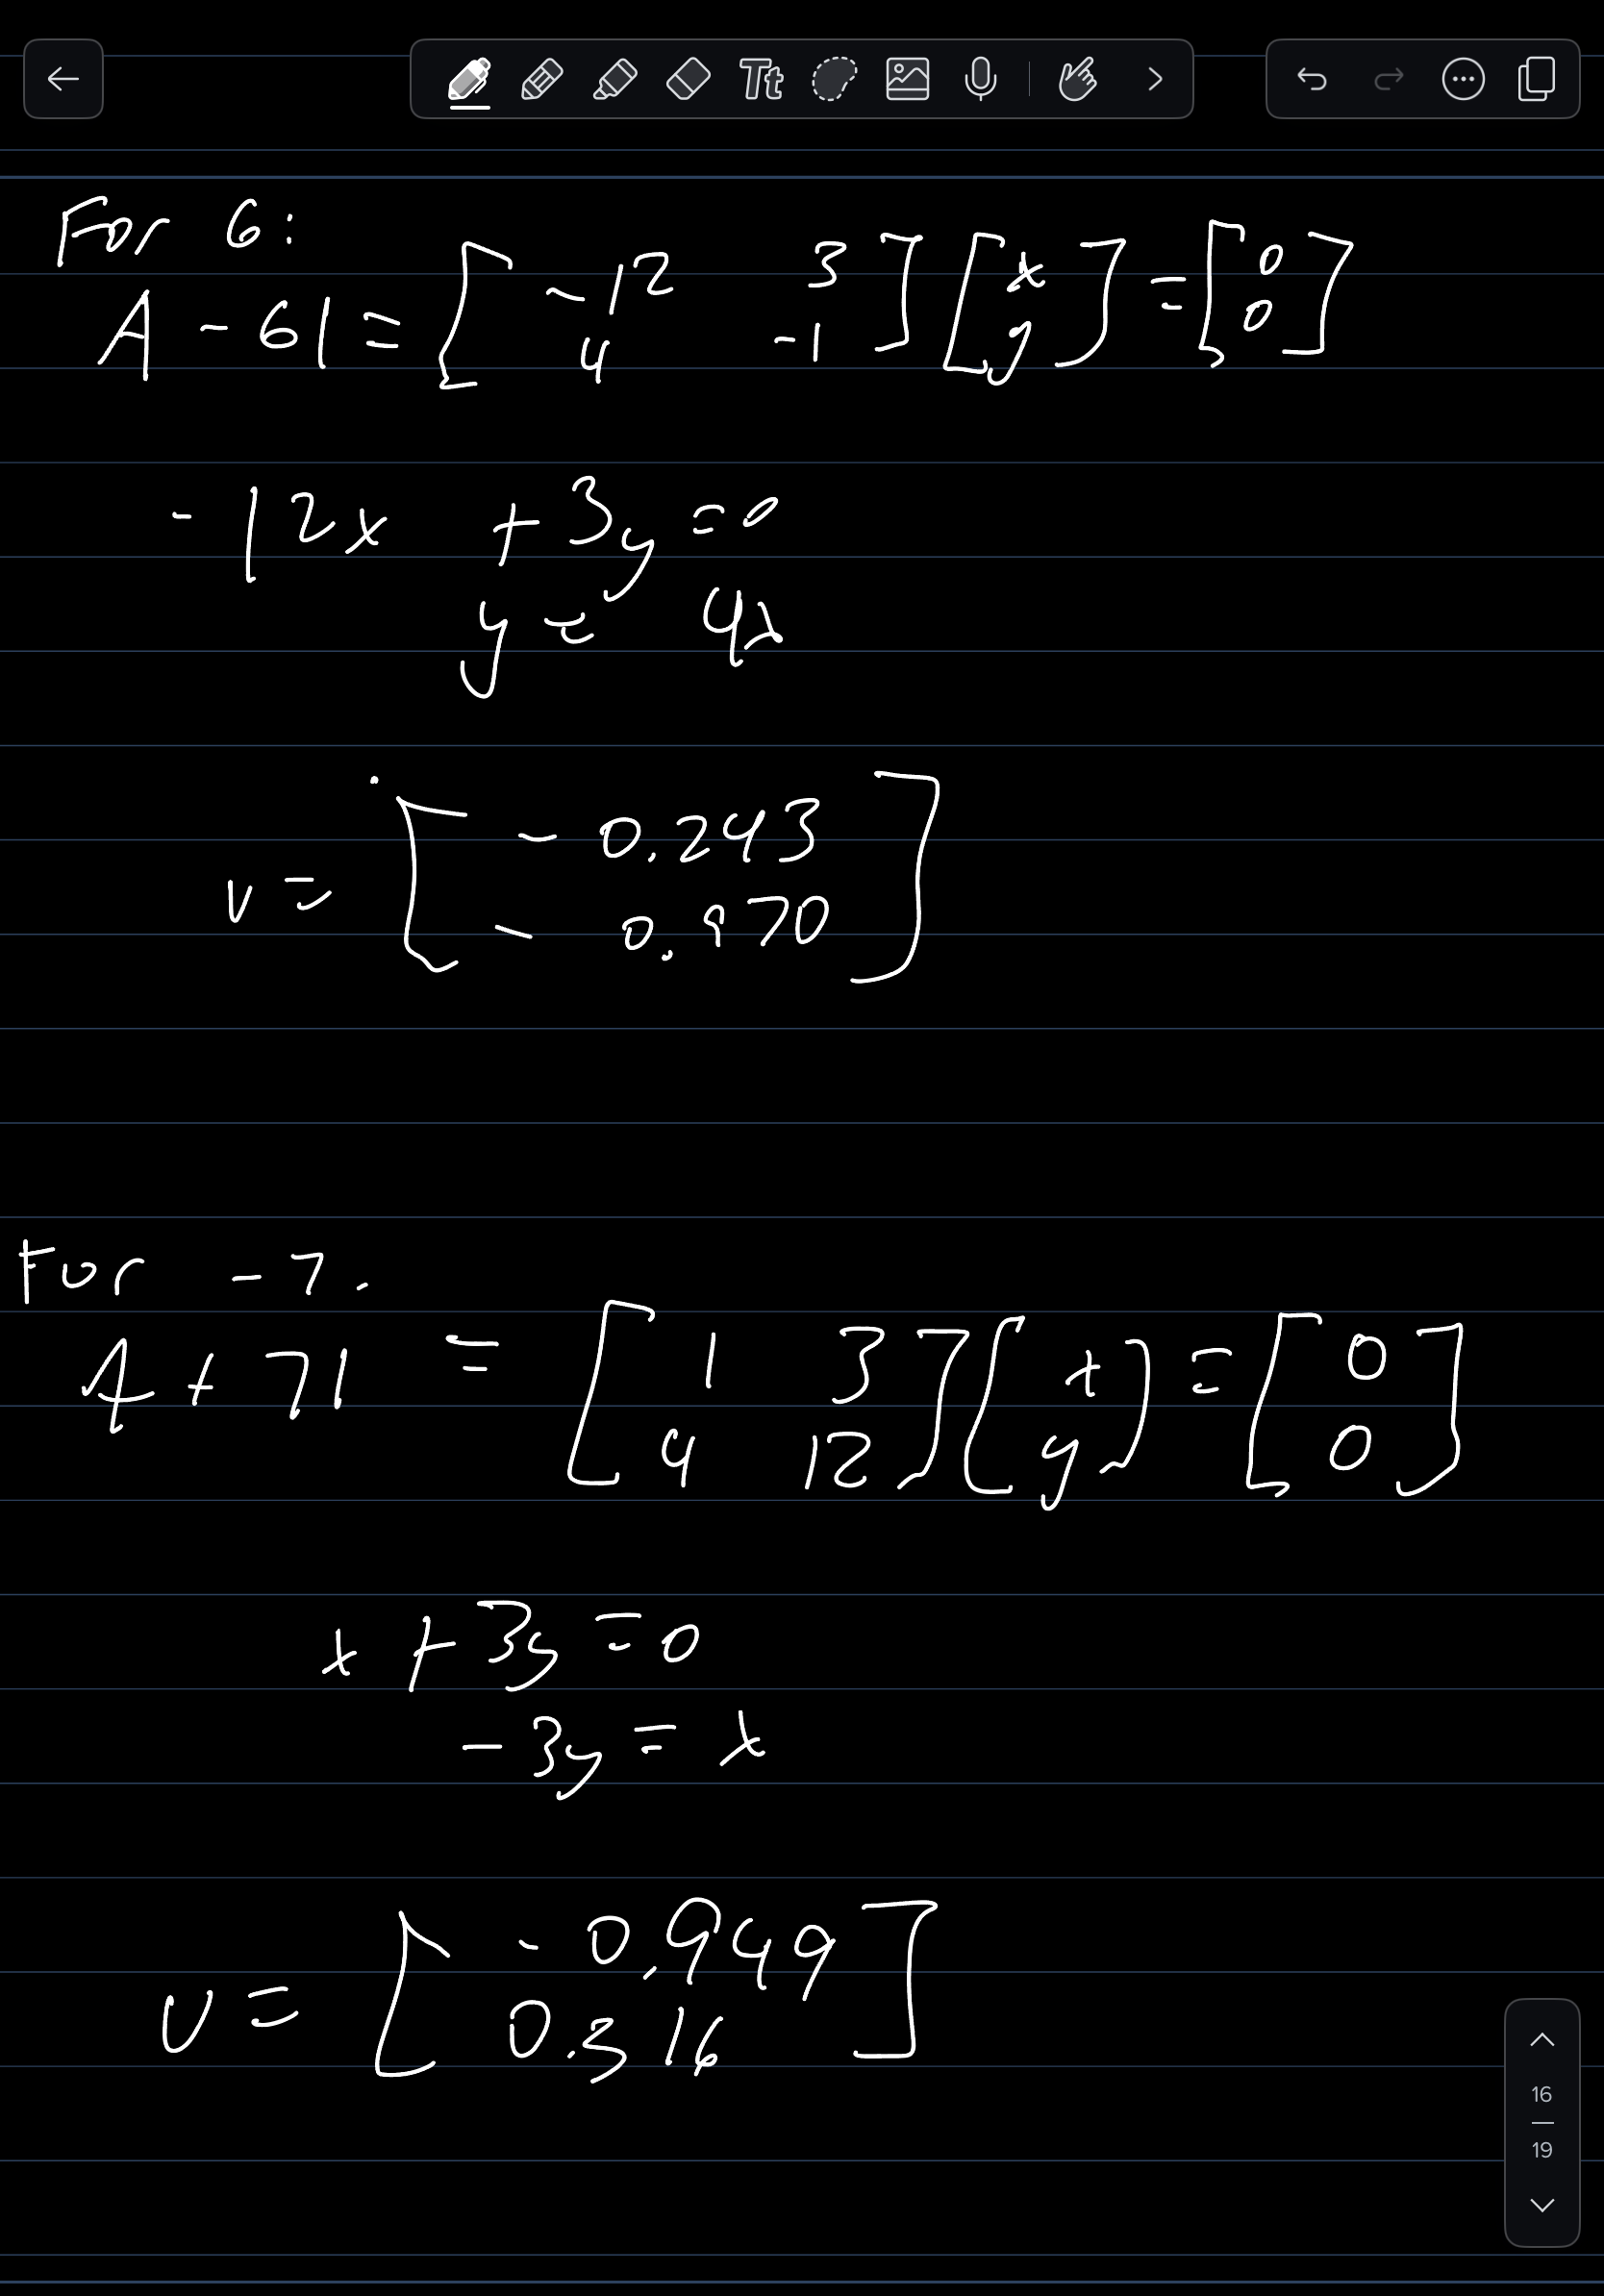 Tt
For 6:
A - 6I = [ -12 3 ] [ x ] = [ 0 ]
4 -1 y 0
-12x + 3y = 0
y = 4x
v = [ -0.243 ]
-0.970
For -7.
A + 7I = [ 1 3 ] [ x ] = [ 0 ]
4 12 y 0
x + 3y = 0
-3y = x
v = [ -0.949 ]
0.316
16
19